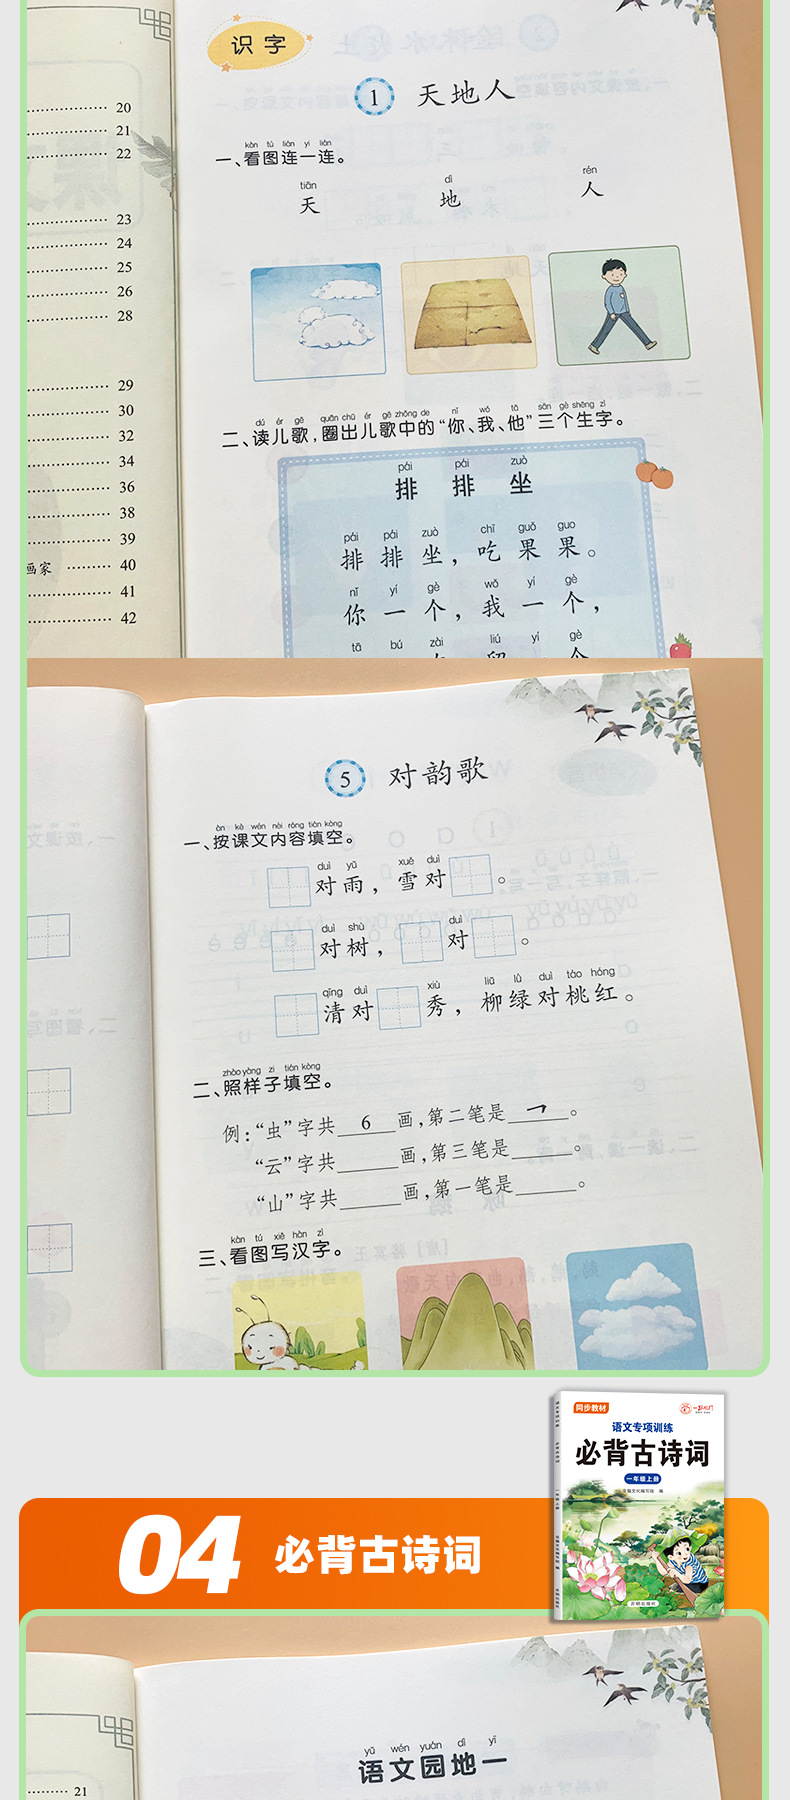 识字
1 天地人
kàn tú lián yi lián
一、看图连一连。
tiān dì rén
天 地 人
20
21
22
23
24
25
26
28
29
30
32
34
36
38
39
画家 40
41
42
dú ér gē quān chū ér gē zhōng de nǐ wǒ tā sān gè shēng zì
二、读儿歌,圈出儿歌中的“你、我、他”三个生字。
pái pái zuò
排 排 坐
pái pái zuò chī guǒ guo
排排坐,吃果果。
nǐ yí gè wǒ yí gè
你一个,我一个,
tā bú zài liú yí gè
5 对韵歌
àn kè wén nèi róng tián kòng
一、按课文内容填空。
duì yǔ xuě duì
对雨,雪对。
duì shù duì
对树,对。
qīng duì xiù liǔ lǜ duì táo hóng
清对秀,柳绿对桃红。
zhào yàng zi tián kòng
二、照样子填空。
例:“虫”字共 6 画,第二笔是 ㇕ 。
“云”字共______画,第三笔是______。
“山”字共______画,第一笔是______。
kàn tú xiě hàn zì
三、看图写汉字。
同步教材
语文专项训练
必背古诗词
一年级上册
04 必背古诗词
开明出版社
yǔ wén yuán dì yī
语文园地一
21